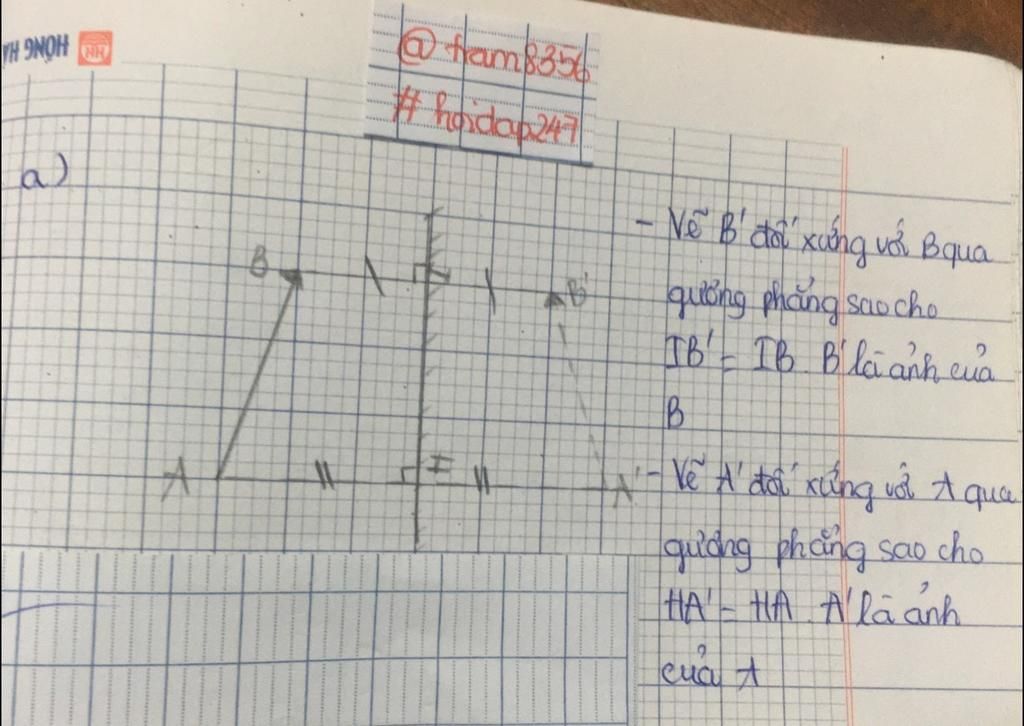 HONG HA
HH
@tram8356
# hoidap247
a)
B
I
B'
A
H
A'
- Vẽ B' đối xứng với B qua
gương phẳng sao cho
IB' = IB. B' là ảnh của
B
- Vẽ A' đối xứng với A qua
gương phẳng sao cho
HA' = HA. A' là ảnh
của A